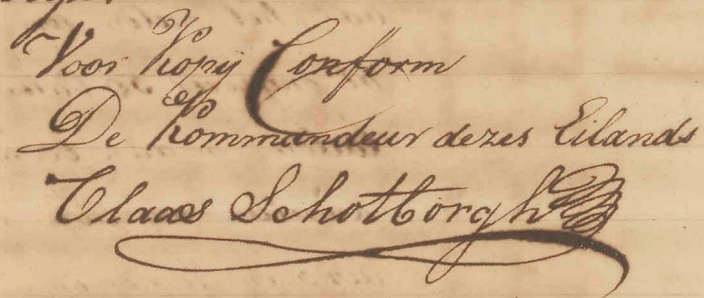 Voor Kopij Conform
De Kommandeur dezes Eilands
Claas Schotborgh